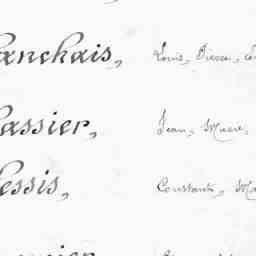 anchais, Louis, Pierre,
assier, Jean, Marie,
essis, Constant, Ma